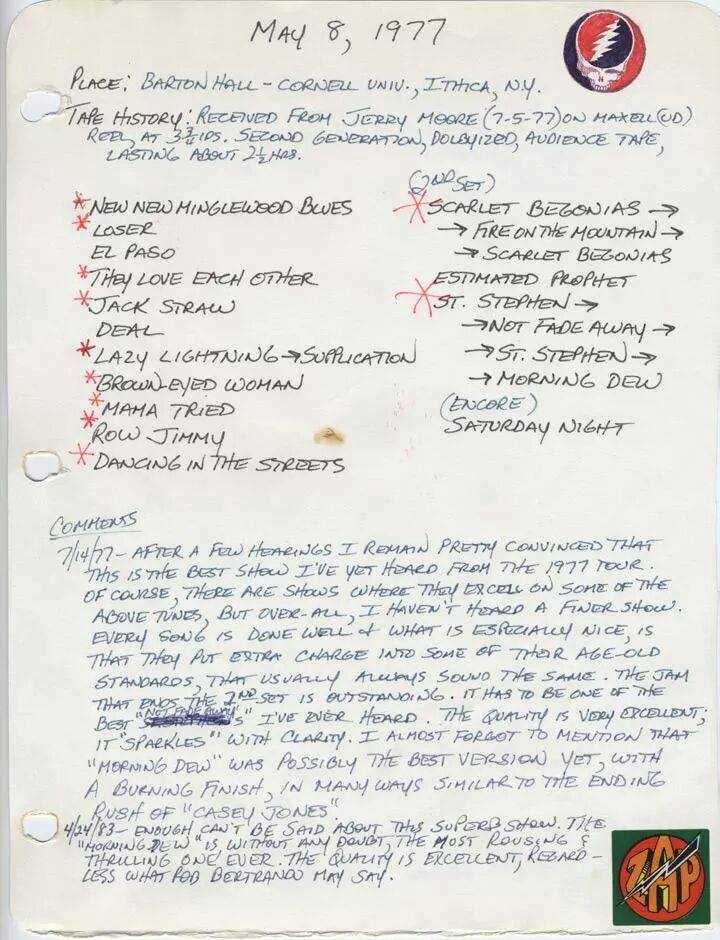 MAY 8, 1977
PLACE: BARTON HALL - CORNELL UNIV., ITHICA, N.Y.
TAPE HISTORY: RECEIVED FROM JERRY MOORE (7-5-77) ON MAXELL (UD)
REEL, AT 3¾ IPS. SECOND GENERATION, DOLBYIZED, AUDIENCE TAPE,
LASTING ABOUT 2½ HRS.
* NEW NEW MINGLEWOOD BLUES
* LOSER
EL PASO
* THEY LOVE EACH OTHER
* JACK STRAW
DEAL
* LAZY LIGHTNING → SUPPLICATION
* BROWN-EYED WOMAN
* MAMA TRIED
* ROW JIMMY
* DANCING IN THE STREETS
(2ND SET)
* SCARLET BEGONIAS →
→ FIRE ON THE MOUNTAIN →
→ SCARLET BEGONIAS
ESTIMATED PROPHET
* ST. STEPHEN →
→ NOT FADE AWAY →
→ ST. STEPHEN →
→ MORNING DEW
(ENCORE)
SATURDAY NIGHT
COMMENTS
7/14/77 - AFTER A FEW HEARINGS I REMAIN PRETTY CONVINCED THAT
THIS IS THE BEST SHOW I'VE YET HEARD FROM THE 1977 TOUR.
OF COURSE, THERE ARE SHOWS WHERE THEY EXCELL ON SOME OF THE
ABOVE TUNES, BUT OVER-ALL, I HAVEN'T HEARD A FINER SHOW.
EVERY SONG IS DONE WELL & WHAT IS ESPECIALLY NICE, IS
THAT THEY PUT EXTRA CHARGE INTO SOME OF THEIR AGE-OLD
STANDARDS, THAT USUALLY ALWAYS SOUND THE SAME. THE JAM
THAT ENDS THE 2ND SET IS OUTSTANDING. IT HAS TO BE ONE OF THE
BEST "NOT FADE AWAY'S" I'VE EVER HEARD. THE QUALITY IS VERY EXCELLENT;
IT "SPARKLES" WITH CLARITY. I ALMOST FORGOT TO MENTION THAT
"MORNING DEW" WAS POSSIBLY THE BEST VERSION YET, WITH
A BURNING FINISH, IN MANY WAYS SIMILAR TO THE ENDING
RUSH OF "CASEY JONES".
4/24/83 - ENOUGH CAN'T BE SAID ABOUT THIS SUPERB SHOW. THE
"MORNING DEW" IS WITHOUT ANY DOUBT, THE MOST ROUSING &
THRILLING ONE EVER. THE QUALITY IS EXCELLENT, REGARD-
LESS WHAT ROB BERTRANDO MAY SAY.
ZAP